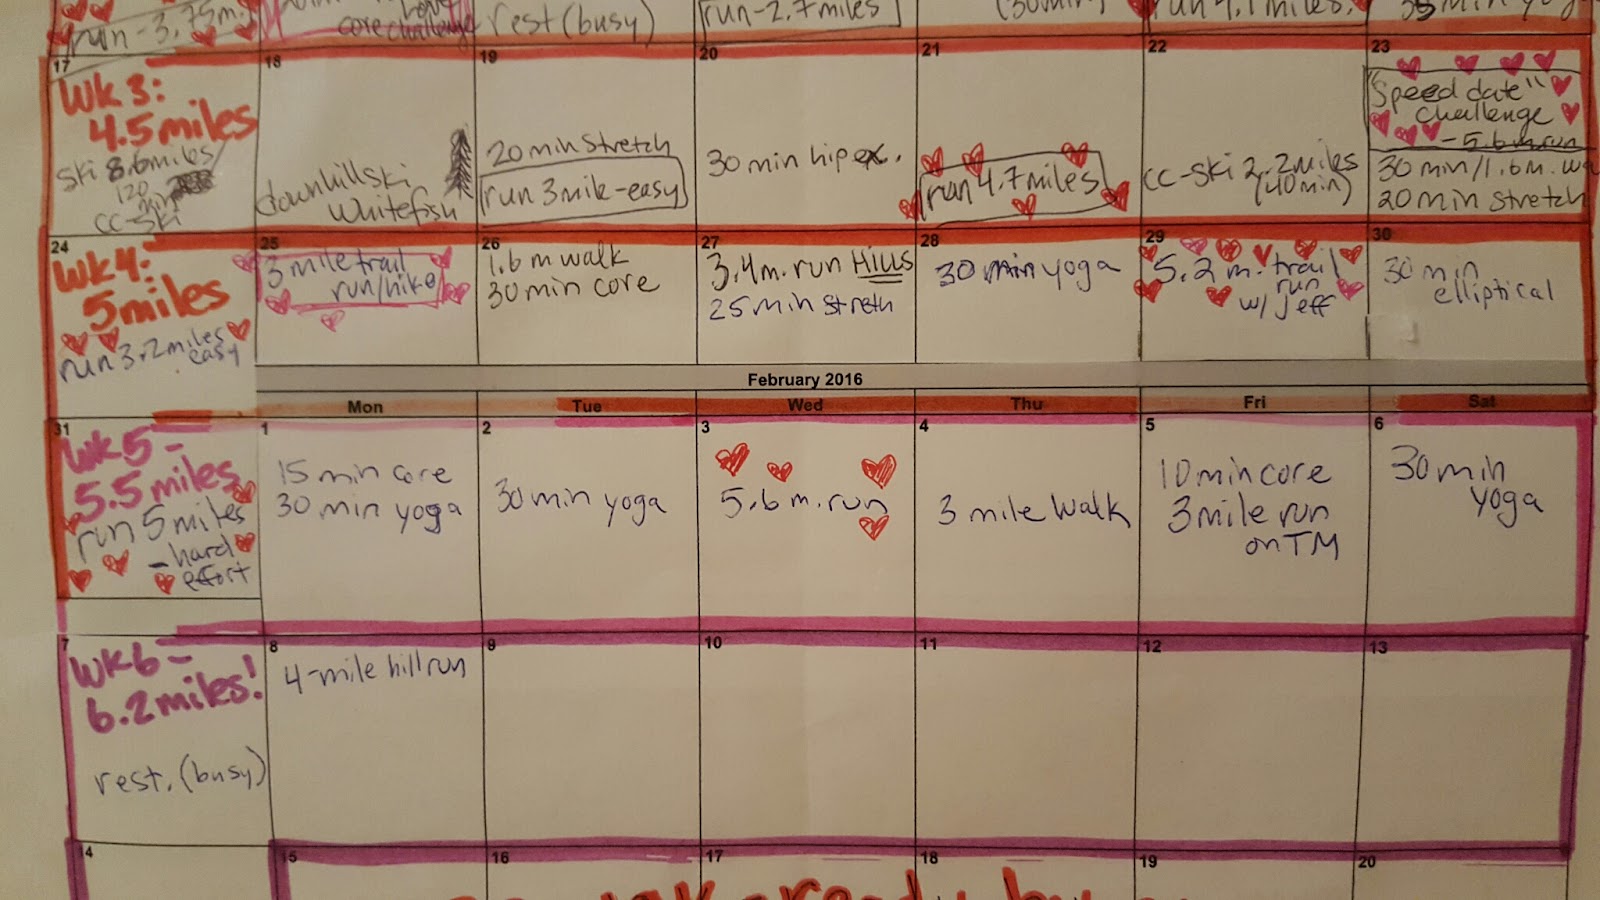 run-3.75m.
core challenge
rest (busy)
run-2.7miles
(30min)
run 4.1miles.
35 min yoga
17
Wk 3:
4.5miles
Ski 8.6miles
120
min
cc-ski
18
downhill ski
Whitefish
19
20 min Stretch
run 3mile-easy
20
30 min hip ex.
21
run 4.7miles
22
cc-ski 2.2miles
(40min)
23
"Speed date"
challenge
-5.6m run
30 min/1.6m.
20 min Stretch
24
Wk4:
5miles
run 3.2miles
easy
25
3 mile trail
run/hike
26
1.6 m walk
30min core
27
3.4m. run Hills
25min Stretch
28
30 min yoga
29
5.2 m. trail
run
w/ Jeff
30
30 min
elliptical
February 2016
Mon
Tue
Wed
Thu
Fri
Sat
31
Wk5-
5.5miles
run 5miles
-hard
effort
1
15 min core
30 min yoga
2
30 min yoga
3
5.6 m. run
4
3 mile Walk
5
10min core
3mile run
on TM
6
30 min
yoga
7
Wk6-
6.2miles!
rest. (busy)
8
4-mile hill run
9
10
11
12
13
14
15
16
17
18
19
20